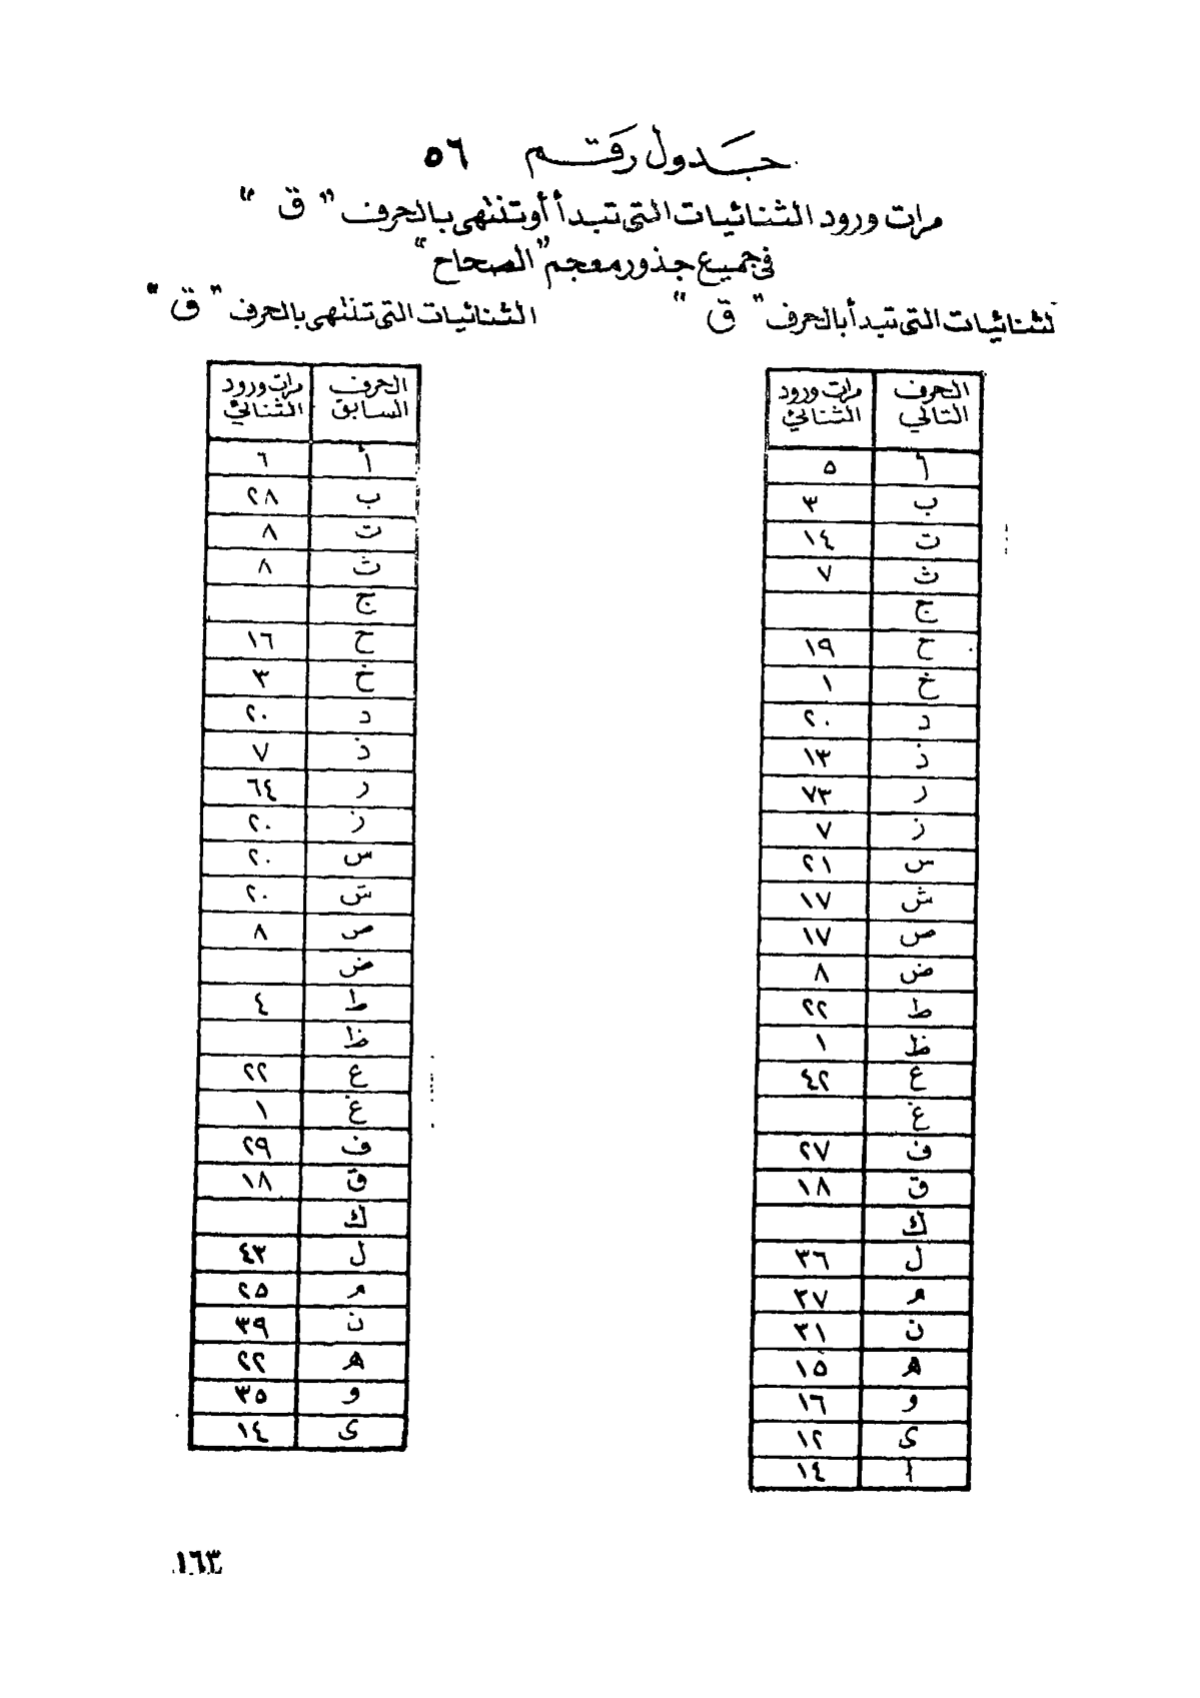 جدول رقم ٥٦
مرات ورود الثنائيات التى تبدأ أو تنتهى بالحرف " ق "
فى جميع جذور معجم "الصحاح"
لثنائيات التى تبدأ بالحرف " ق "
الحرف التالي	مرات ورود الثنائي
أ	٥
ب	٣
ت	١٤
ث	٧
ج
ح	١٩
خ	١
د	٢٠
ذ	١٣
ر	٧٣
ز	٧
س	٢١
ش	١٧
ص	١٧
ض	٨
ط	٢٢
ظ	١
ع	٤٢
غ
ف	٢٧
ق	١٨
ك
ل	٣٦
م	٣٧
ن	٣١
ه	١٥
و	١٦
ى	١٢
أ	١٤
الثنائيات التى تنتهى بالحرف " ق "
الحرف السابق	مرات ورود الثنائي
أ	٦
ب	٢٨
ت	٨
ث	٨
ج
ح	١٦
خ	٣
د	٢٠
ذ	٧
ر	٦٤
ز	٢٠
س	٢٠
ش	٢٠
ص	٨
ض
ط	٤
ظ
ع	٢٢
غ	١
ف	٢٩
ق	١٨
ك
ل	٤٣
م	٢٥
ن	٣٩
ه	٢٢
و	٣٥
ى	١٤
١٦٣